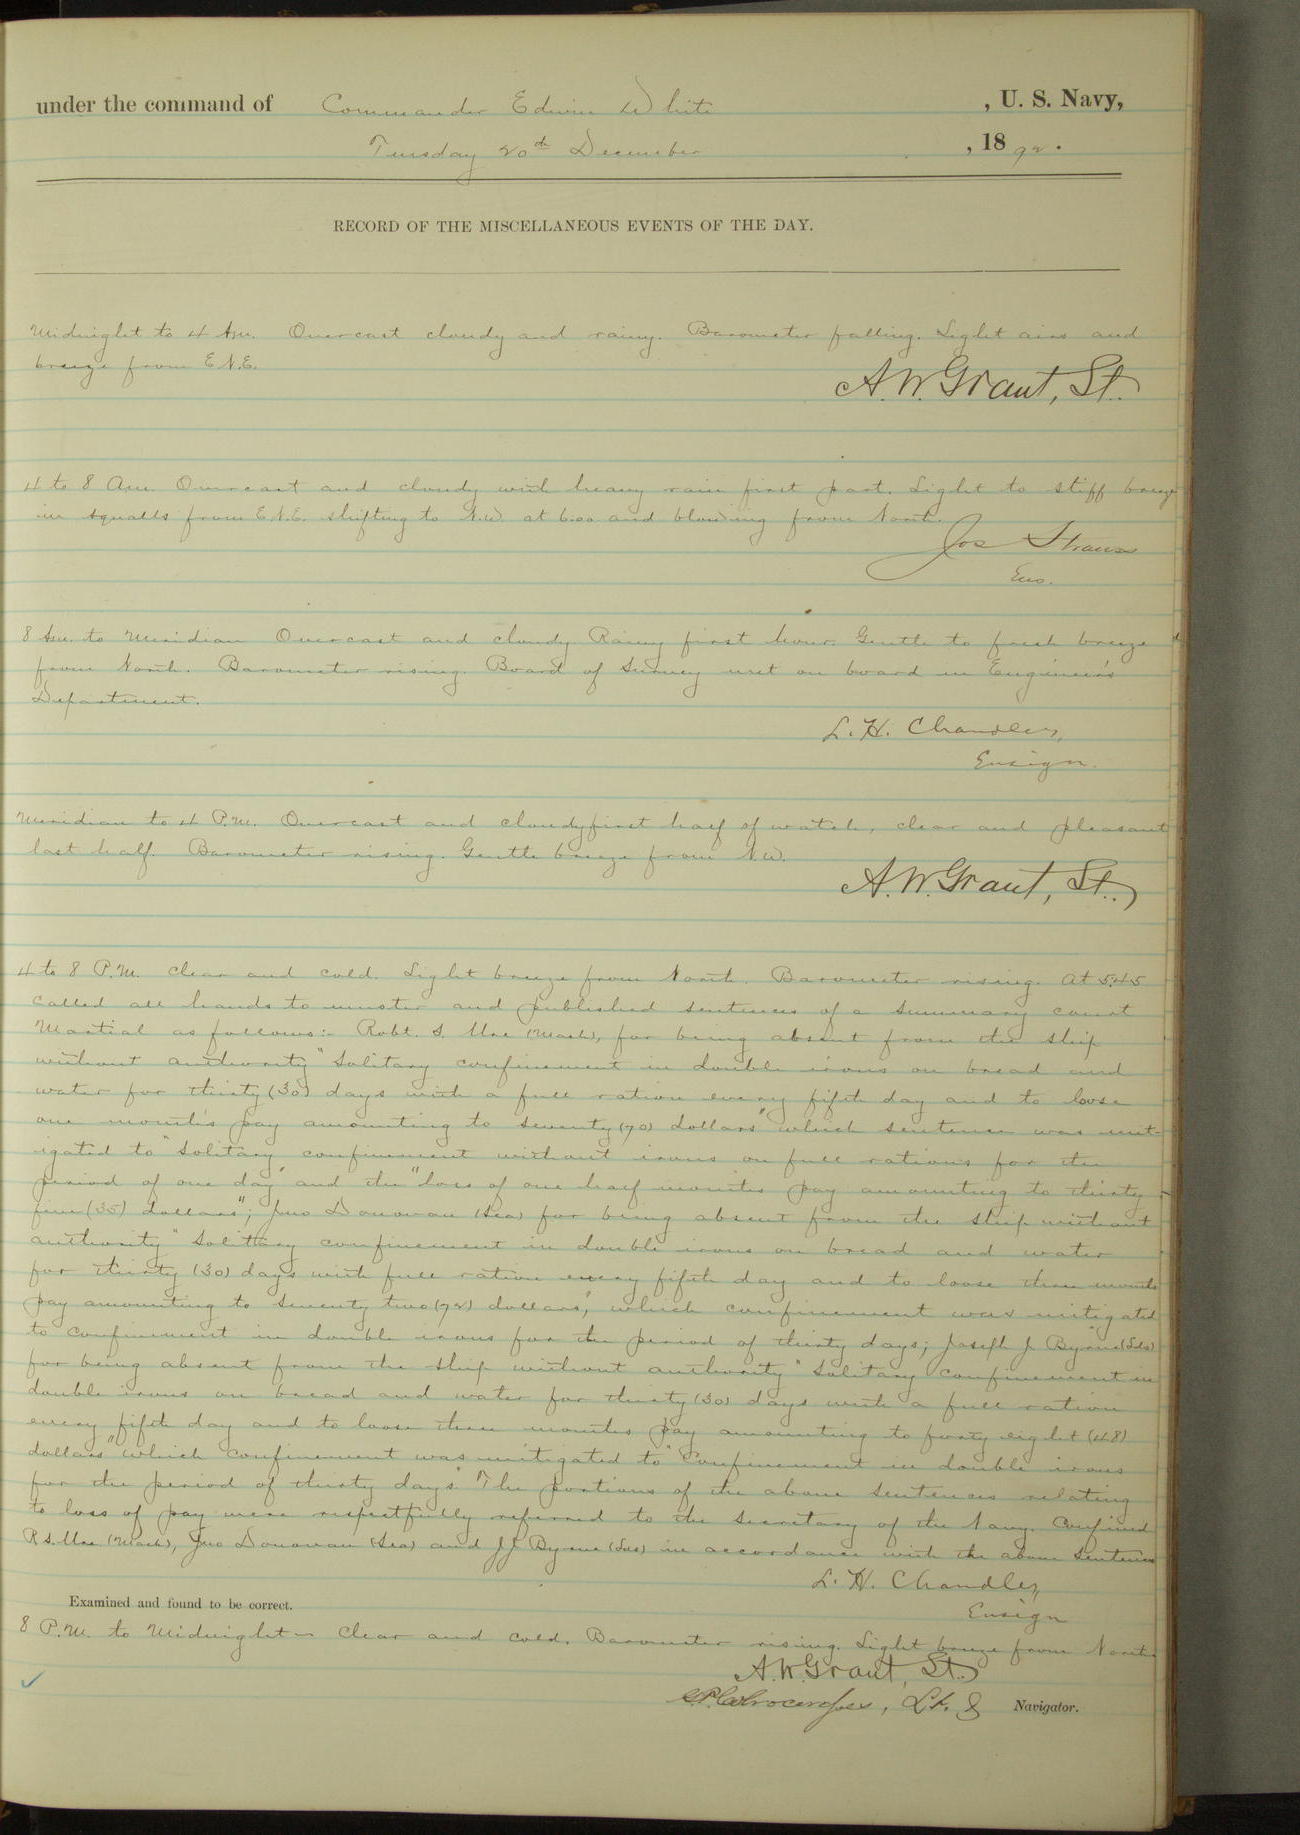 under the command of Commander Edwin White , U. S. Navy,
Tuesday 20th December , 1892.
RECORD OF THE MISCELLANEOUS EVENTS OF THE DAY.
Midnight to 4 Am. Overcast cloudy and rainy. Barometer falling. Light airs and
breeze from E.N.E.
A.W. Grant, Lt.
4 to 8 Am. Overcast and cloudy with heavy rain first part. Light to stiff breeze
in squalls from E.N.E. shifting to N.W. at 6.00 and blowing from North.
Jos Strauss
Ens.
8 Am. to Meridian Overcast and cloudy Rainy first hour. Gentle to fresh breeze
from North. Barometer rising. Board of Survey met on board in Engineer's
Department.
L. H. Chandler,
Ensign.
Meridian to 4 P.M. Overcast and cloudy first half of watch, clear and pleasant
last half. Barometer rising. Gentle breeze from N.W.
A.W. Grant, Lt.
4 to 8 P.M. Clear and cold. Light breeze from North. Barometer rising. At 5.45
called all hands to muster and published sentences of a Summary court
Martial as follows:- Robt. S. (Mach), for being absent from the ship
without authority "Solitary confinement in double irons on bread and
water for thirty (30) days with a full ration every fifth day and to loose
one month's pay amounting to seventy (70) dollars" which sentence was mit-
igated to "Solitary confinement without irons on full rations for the
period of one day" and the "loss of one half months pay amounting to thirty
five (35) dollars"; Jno Donovan (Sea) for being absent from the ship without
authority "Solitary confinement in double irons on bread and water
for thirty (30) days with full ration every fifth day and to loose three months
pay amounting to seventy two (72) dollars", which confinement was mitigated
to confinement in double irons for the period of thirty days; Joseph J. Byrne (Lds)
for being absent from the ship without authority "Solitary confinement in
double irons on bread and water for thirty (30) days with a full ration
every fifth day and to loose three months pay amounting to forty eight (48)
dollars" which confinement was mitigated to "Confinement in double irons
for the period of thirty days" The portions of the above sentences relating
to loss of pay were respectfully referred to the Secretary of the Navy. Confined
R.S. (Mach), Jno Donovan (Sea) and J.J. Byrne (Lds) in accordance with the above sentences
L. H. Chandler,
Ensign
Examined and found to be correct.
8 P.M. to Midnight - Clear and cold. Barometer rising. Light breeze from North.
A.W. Grant, Lt.
Lt. & Navigator.